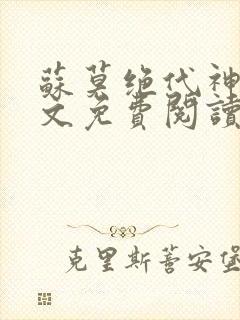 蘇莫绝代神
文免費閱讀
克里斯蒂安堡